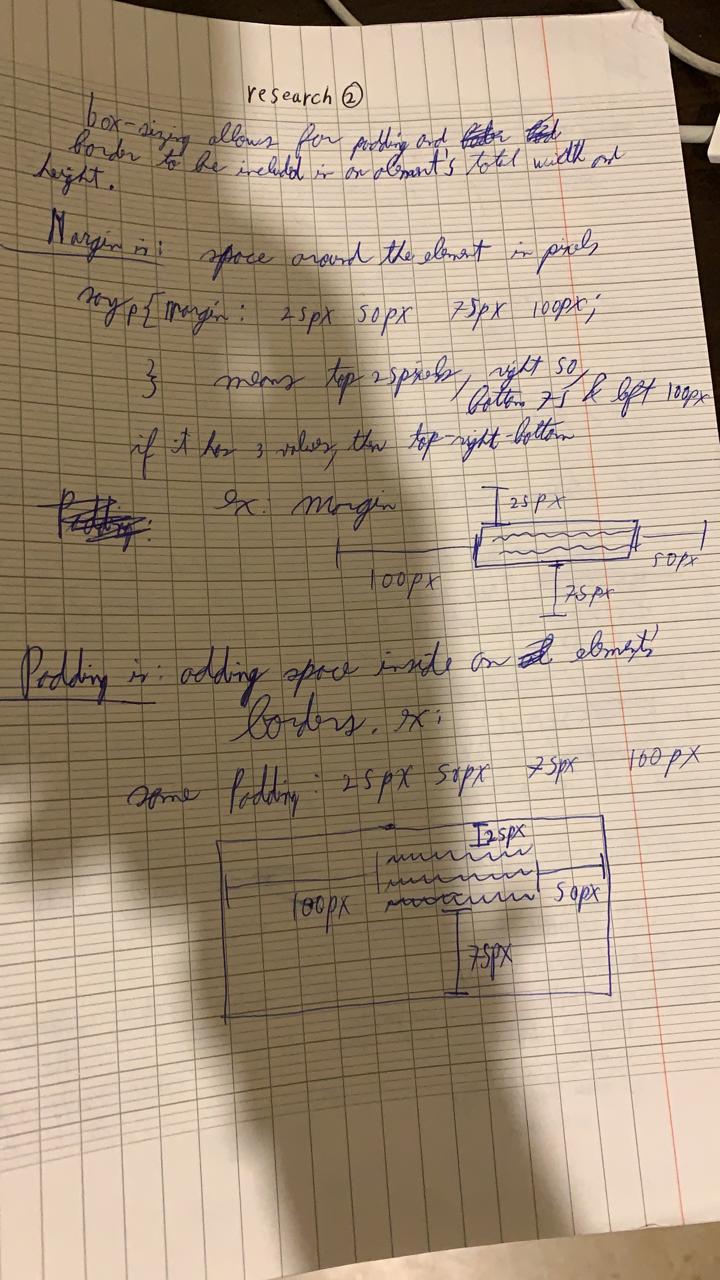 research ②
box-sizing allows for padding and
border to be included in an element's total width and
height.
Margin is: space around the element in pixels
say p{ margin: 25px 50px 75px 100px;
} means top 25pixels, right 50,
bottom 75 & left 100px
if it has 3 values, then top-right-bottom
Padding:
ex: margin
25px
100px
50px
75px
Padding is: adding space inside an elements'
borders. ex:
some Padding: 25px 50px 75px 100px
25px
100px
50px
75px